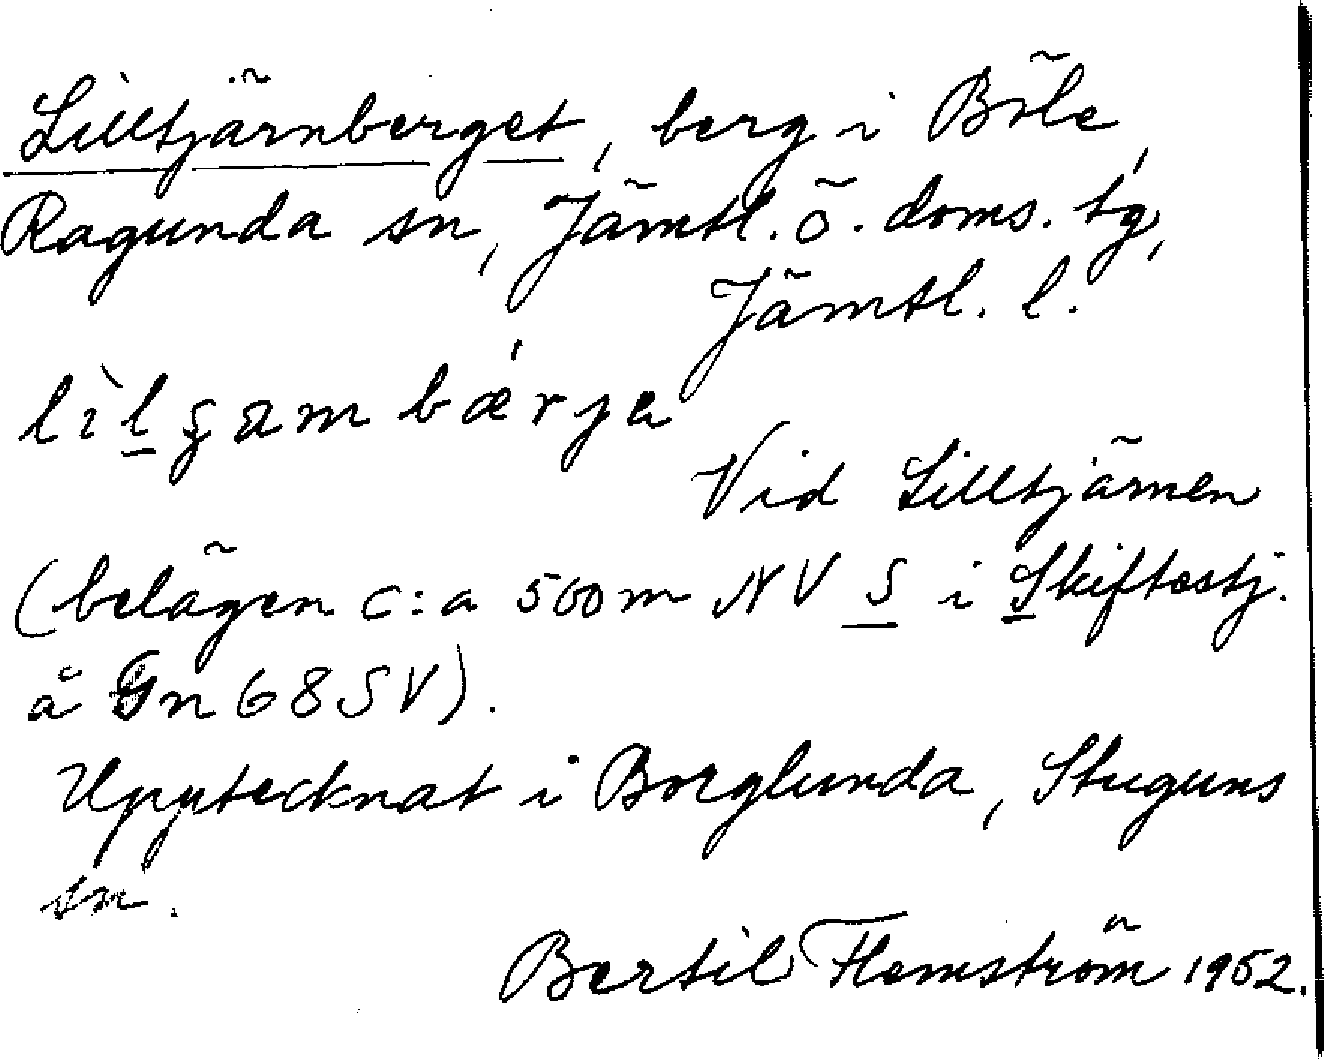 Lilltjärnberget, berg i Böle,
Ragunda sn, Jämtl. ö. doms. tg,
Jämtl. l.
lìlʂambǽrja
Vid Lilltjärnen
(belägen c:a 500 m NV S i Skiftestj.
å Gn 68 SV).
Upptecknat i Borglunda, Stuguns
sn.
Bertil Flemström 1952.